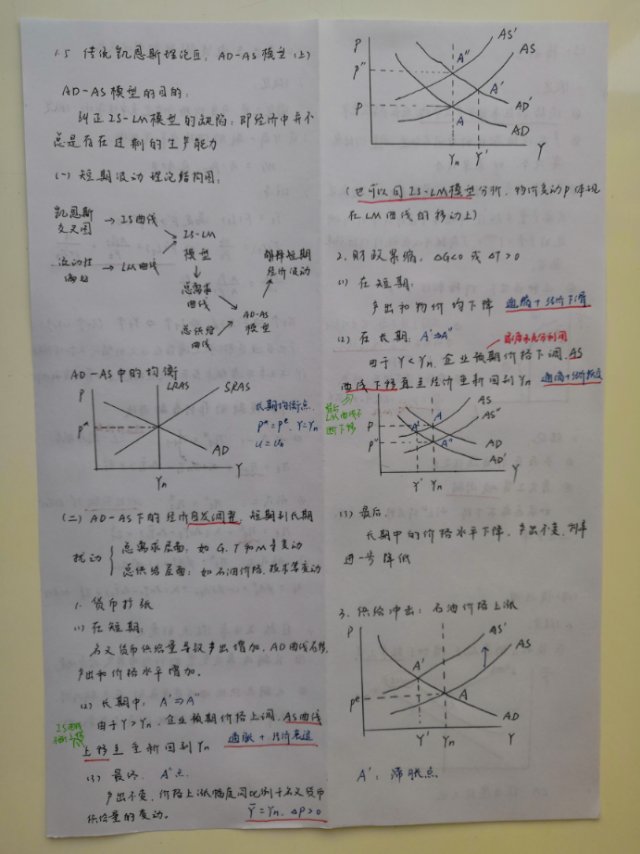 1.5 传统凯恩斯理论Ⅱ, AD-AS模型(上)
AD-AS模型的目的:
纠正IS-LM模型的缺陷:即经济中并不
总是存在过剩的生产能力
(一) 短期波动理论结构图:
凯恩斯
交叉图 → IS曲线
IS-LM
模型
流动性
偏好 → LM曲线
总需求
曲线
总供给
曲线
AD-AS
模型
解释短期
经济波动
AD-AS中的均衡
P
LRAS
SRAS
P*
AD
Yn
Y
长期均衡点
P*=Pe, Y=Yn
u=un
(二) AD-AS下的经济自发调整, 短期到长期
扰动
总需求层面: 如G、T和M等变动
总供给层面: 如石油价格、技术等变动
1. 货币扩张
(1) 在短期:
名义货币供给量导致产出增加, AD曲线右移,
产出和价格水平增加.
(2) 长期中: A'⇒A"
由于Y>Yn, 企业预期价格上调, AS曲线
上移直至重新回到Yn 通胀+经济衰退
IS曲线
(3) 最终 A"点.
产出不变, 价格上涨幅度同比例于名义货币
供给量的变动. Y=Yn, ΔP>0
P
AS'
AS
P"
A"
A'
P
A
AD'
AD
Yn
Y'
Y
(也可以用IS-LM模型分析, 物价变动P体现
在LM曲线的移动上)
2. 财政紧缩, ΔG<0 或 ΔT>0
(1) 在短期:
产出和物价均下降 通缩+经济下滑
(2) 在长期: A'⇒A"
资源未充分利用
由于Y<Yn, 企业预期价格下调, AS
曲线下移直至经济重新回到Yn 通缩+经济恢复
LM曲线不
断下移
P
AS
AS"
P
A
A'
P"
A"
AD
AD'
Y'
Yn
Y
(3) 最后
长期中的价格水平下降, 产出不变, 利率
进一步降低
3. 供给冲击: 石油价格上涨
P
AS'
AS
A'
Pe
A
AD
Y'
Yn
Y
A': 滞胀点